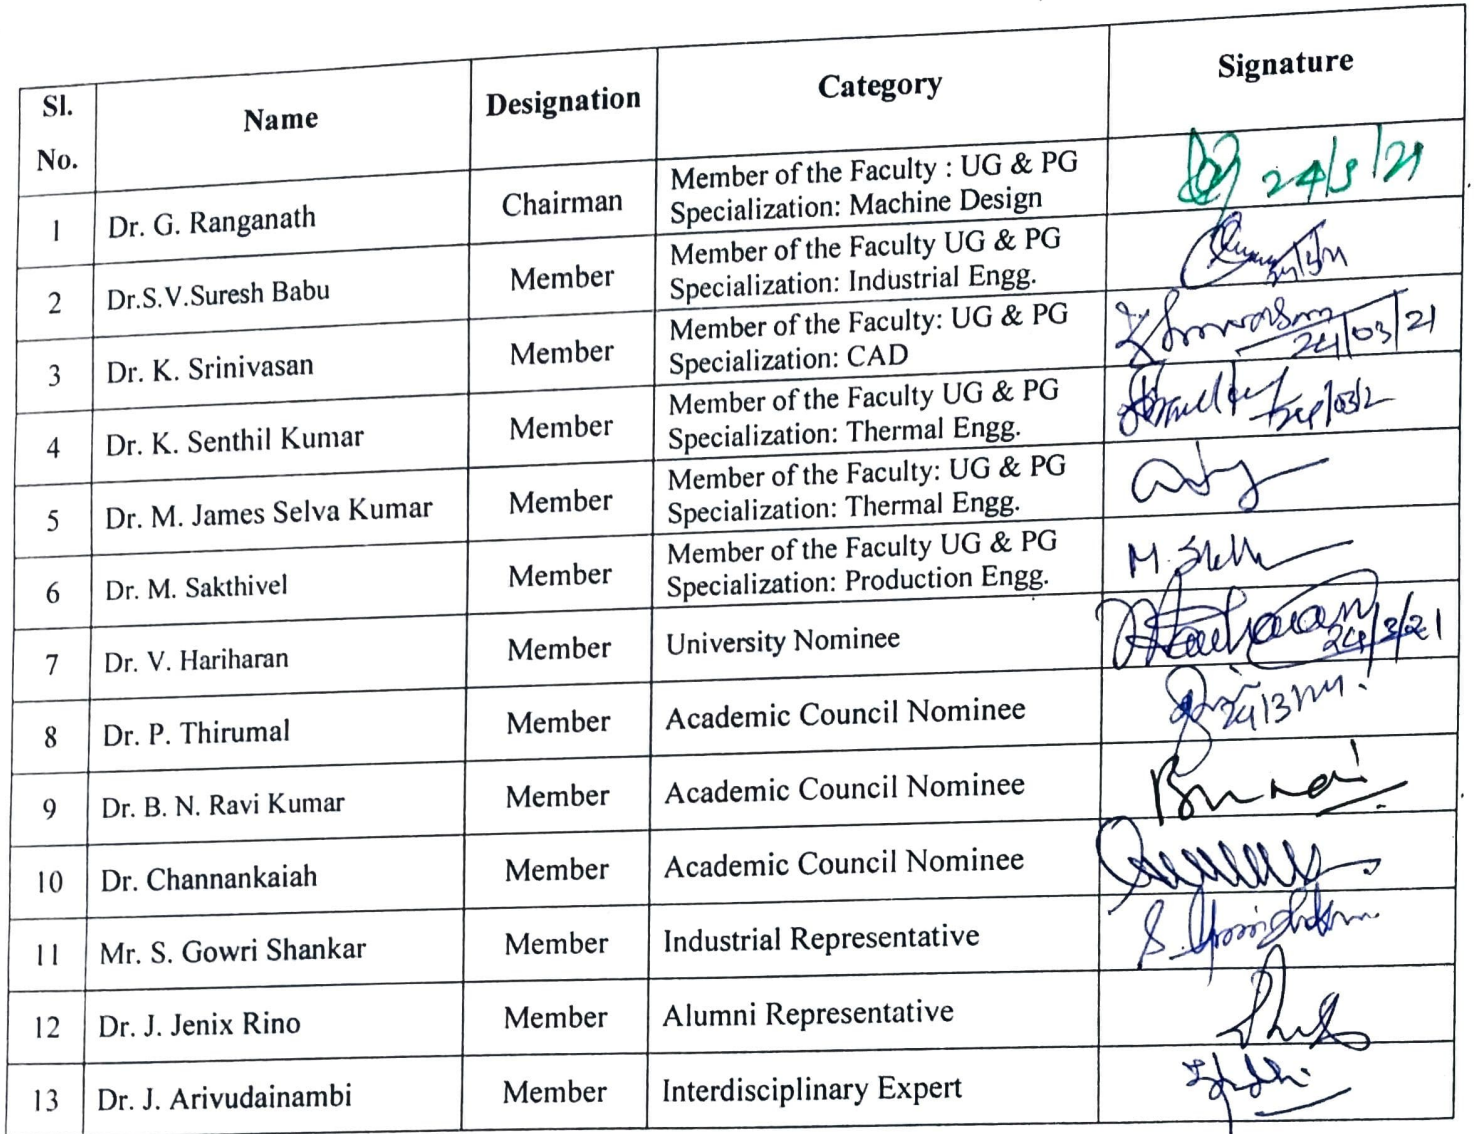 Sl. No. Name Designation Category Signature
1 Dr. G. Ranganath Chairman Member of the Faculty : UG & PG
Specialization: Machine Design 24/3/21
2 Dr.S.V.Suresh Babu Member Member of the Faculty UG & PG
Specialization: Industrial Engg.
3 Dr. K. Srinivasan Member Member of the Faculty: UG & PG
Specialization: CAD 24/03/21
4 Dr. K. Senthil Kumar Member Member of the Faculty UG & PG
Specialization: Thermal Engg.
5 Dr. M. James Selva Kumar Member Member of the Faculty: UG & PG
Specialization: Thermal Engg.
6 Dr. M. Sakthivel Member Member of the Faculty UG & PG
Specialization: Production Engg. M.
7 Dr. V. Hariharan Member University Nominee 24/3/21
8 Dr. P. Thirumal Member Academic Council Nominee
9 Dr. B. N. Ravi Kumar Member Academic Council Nominee
10 Dr. Channankaiah Member Academic Council Nominee
11 Mr. S. Gowri Shankar Member Industrial Representative S.
12 Dr. J. Jenix Rino Member Alumni Representative
13 Dr. J. Arivudainambi Member Interdisciplinary Expert